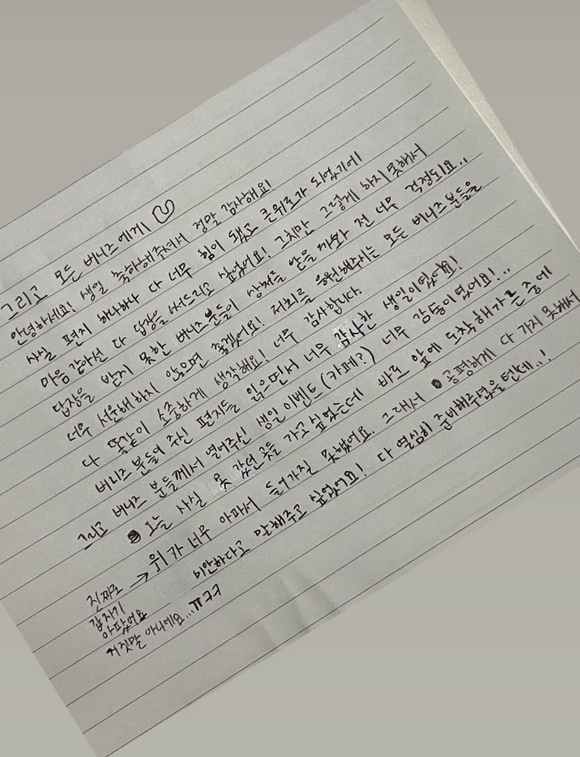 그리고 모든 버니즈에게!
안녕하세요! 생일 축하해주셔서 정말 감사해요!
사실 편지 하나하나 다 너무 힘이 됐고 큰 위로가 되었기에!
마음 같아선 다 답장을 써드리고 싶었어요! 그치만 그렇게 하지 못해서
답장을 받지 못한 버니즈분들이 상처를 받을까봐 전 너무 걱정되요..
너무 서운해하지 않으면 좋겠어요! 저희를 응원해주시는 모든 버니즈분들을
다 똑같이 소중하게 생각해요! 너무 감사합니다.
버니즈분들이 써주신 편지들 읽으면서 너무 감사한 생일이었어요!
그리고 버니즈 분들께서 열어주신 생일 이벤트 (카페?) 너무 감동이었어요!..
오늘 사실 못 갔던 곳들 가고 싶었는데 바로 앞에 도착해가는 중에
위가 너무 아파서 들어가질 못했어요. 그래서 공평하게 다 가지 못해서
미안하다고 말해주고 싶었어요! 다 열심히 준비해주셨을텐데..!
진짜로
갑자기
아팠어요
거짓말 아니에요..ㅠㅋㅋ